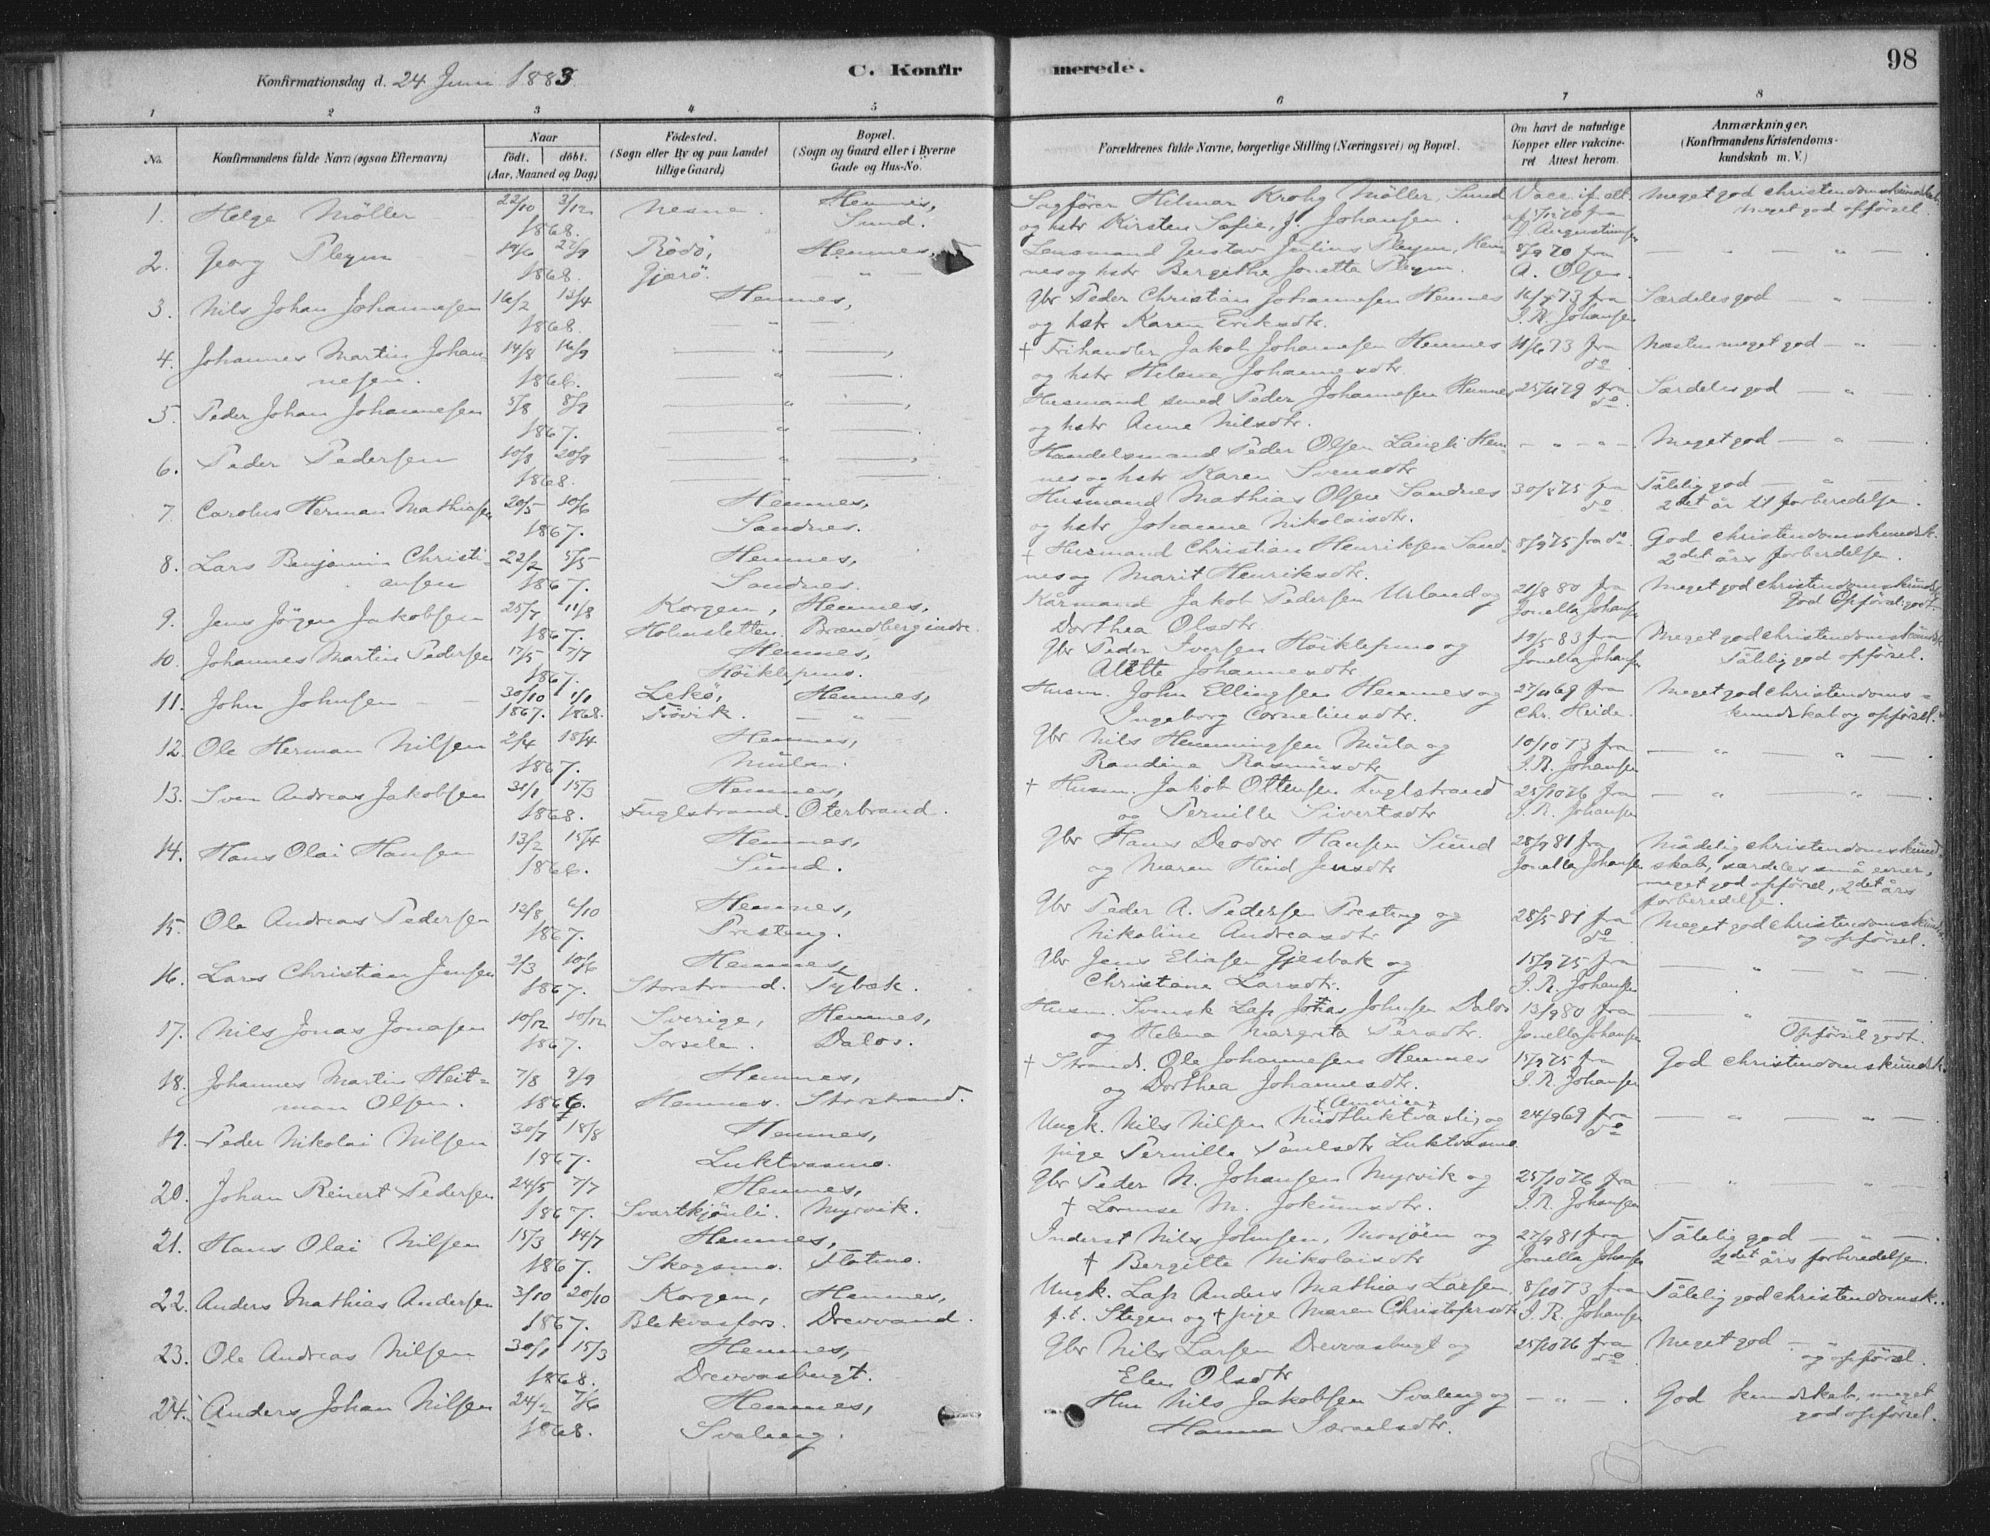 98
Konfirmationsdag d. 24 Juni 1883. C. Konfirmerede.
1 2 3 4 5 6 7 8
No. Konfirmandens fulde Navn (ogsaa Efternavn) Naar født. døbt. (Aar, Maaned og Dag) Födested. (Sogn eller By og paa Landet tillige Gaard) Bopæl. (Sogn og Gaard eller i Byerne Gade og Hus-No. Forældrenes fulde Navne, borgerlige Stilling (Næringsvei) og Bopæl. Om havt de naturlige Kopper eller vakcineret Attest herom. Anmærkninger. (Konfirmandens Kristendomskundskab m. V.)
1. Helge Möller 22/10 3/12 Nesne. Hemnes, Sagfører Hilmar Krohg Möller, Sund Vacc. if. att. Meget god christendomskundskab.
1868. Sund. og hstr Kirsten Sofie, f. Johansen. af 5/12 70 fra Augustinsen meget god opførsel.
2. Georg Pleym 19/6 27/9 Bödö, Hemnes. Lensmand Gustav Julius Pleym, Hem- 8/9 70 fra
1868. Gjærö. nes og hstr Bergithe Jonette Pleym. A. Olsen.
3. Nils Johan Johannesen 16/2 13/4 Hemnes, Gbr Peder Christian Johannesen Hemnes 73 fra Særdeles god — " —
1868. og hstr Karen Eriksdtr. I. R. Johansen
4. Johannes Martin Johan 14/8 16/9 † Frihandler Jakob Johannesen Hemnes 11/6 73 fra Næsten meget god — " —
nesen. 1866. og hstr Helene Johannesdtr. do
5. Peder Johan Johannesen 5/8 8/9 Husmand smed Peder Johannesen Hemnes 25/11 79 fra Særdeles god — " —
1867. og hstr Anne Nilsdtr. do
6. Peder Pedersen 10/8 20/9 Handelsmand Peder Olsen Langli Hem- — " — " — Meget god — " —
1868. nes og hstr Karen Svensdtr
7. Carolus Herman Mathiasen 20/5 10/6 Hemnes, Husmand Mathias Olsen Sandnes 75 fra Tålelig god — " —
1867. Sandnes. og hstr Johanne Nikolaisdtr. do 2det år til forberedelse.
8. Lars Benjamin Christi- 22/2 5/5 Hemnes, † Husmand Christian Henriksen Sand- 8/9 75 fra do God christendomskundsk.
ansen 1867. Sandnes. nes og Marit Henriksdtr. 2det års forberedelse.
9. Jens Jörgen Jakobsen 25/7 11/8 Korgen, Hemnes, Kårmand Jakob Pedersen Urland og 21/8 80 fra Meget god christendomskundsk.
1867. Holmsletten. Brændberg indre. Dorthea Olsdtr. Jonella Johansen god Opførsel: godt.
10. Johannes Martin Pedersen 17/5 7/7 Hemnes, Gbr Peder Iversen Höiklepmo og 19/5 83 fra Meget god christendomskundsk.
1867. Höiklepmo. Alette Johannesdtr Jonella Johansen Tålelig god opførsel.
11. John Johnsen 30/10 1/1 Lekö, Hemnes, Husm. John Ellingsen Hemnes og 27/11 69 fra Meget god christendoms-
1867. 1868. Frövik. — " — Ingeborg Corneliusdtr. Chr. Heide. kundskab og opførsel.
12. Ole Herman Nilsen 2/4 18/4 Hemnes, Gbr Nils Henningsen Mula og 10/10 73 fra — " — " —
1867. Mula. Randine Rasmusdtr I. R. Johansen
13. Sven Andreas Jakobsen 31/1 15/3 Hemnes, † Husm. Jakob Ottensen Fuglstrand 25/10 76 fra — " — " —
1868. Fuglstrand. Oterbrand. og Pernille Sivertsdtr I. R. Johansen
14. Hans Olai Hansen 13/2 15/4 Hemnes, Gbr Hans Deodor Hansen Sund 28/9 81 fra Mådelig christendomskund-
1866. Sund. og Maren Hind Jensdtr Jonella Johansen skab, særdeles små evner,
meget god opførsel, 2det års
forberedelse.
15. Ole Andreas Pedersen 12/8 6/10 Hemnes, Gbr Peder A. Pedersen Presteng og 28/5 81 fra Meget god christendomskunds.
1867. Presteng. Nikoline Andreasdtr do og opførsel.
16. Lars Christian Jensen 2/3 10/6 Hemnes, Gbr Jens Eliasen Gjesbak og 15/9 75 fra — " — " —
1867. Storstrand. Tybæk. Christiane Larsdtr. I. R. Johansen
17. Nils Jonas Jonasen 10/12 10/12 Sverige, Hemnes, Husm. Svensk Lap Jonas Johnsen Dalos 13/9 80 fra — " —
1867. Sorsele. Dalos. og Helena Margreta Persdtr. Jonella Johansen Opførsel godt.
18. Johannes Martin Heit- 7/8 9/9 Hemnes, † Strands. Ole Johannesen Hemnes 15/9 75 fra God christendomskundsk.
man Olsen. 1866. Hemnes. Storstrand. og Dorthea Johannesdtr. I. R. Johansen
19. Peder Nikolai Nilsen 30/7 18/8 Hemnes, Ungk. Nils Nilsen Midtluktvasli, og America 24/9 69 fra — " — " —
1867. Luktvasmo. pige Pernille Paulsdtr Luktvasmo do
20. Johan Reinert Pedersen 24/5 7/7 Hemnes, Gbr Peder N. Johansen Myrvik og 25/10 76 fra — " — " —
1867. Svartkjönli. Myrvik. † Lornse M. Jokumsdtr. I. R. Johansen
21. Hans Olai Nilsen 15/3 14/7 Hemnes, Inderst Nils Johnsen, Mosjöen og 27/9 81 fra Tålelig god — " —
1867. Skogsmo. Flatmo. † Bergitte Nikolaisdtr Jonella Johansen 2det års forberedelse.
22. Anders Mathias Andersen 3/10 20/10 Korgen, Hemnes, Ungk. Lap Anders Mathias Larsen, 8/10 73 fra Tålelig god christendomsk.
1867. Blekvasfors. Drevvand. p.t. Stegen og † pige Maren Christofersdtr I. R. Johansen
23. Ole Andreas Nilsen 30/1 15/3 Hemnes, Gbr Nils Larsen Drevvasbugt og 25/10 76 fra Meget god — " —
1868. Drevvasbugt. Elen Olsdtr do og opførsel.
24. Anders Johan Nilsen 24/2 7/6 Hemnes, Hm Nils Jakobsen Svaleng og — " — God kundskab, meget
1868. Svaleng. Hanna Israelsdtr. god opførsel.